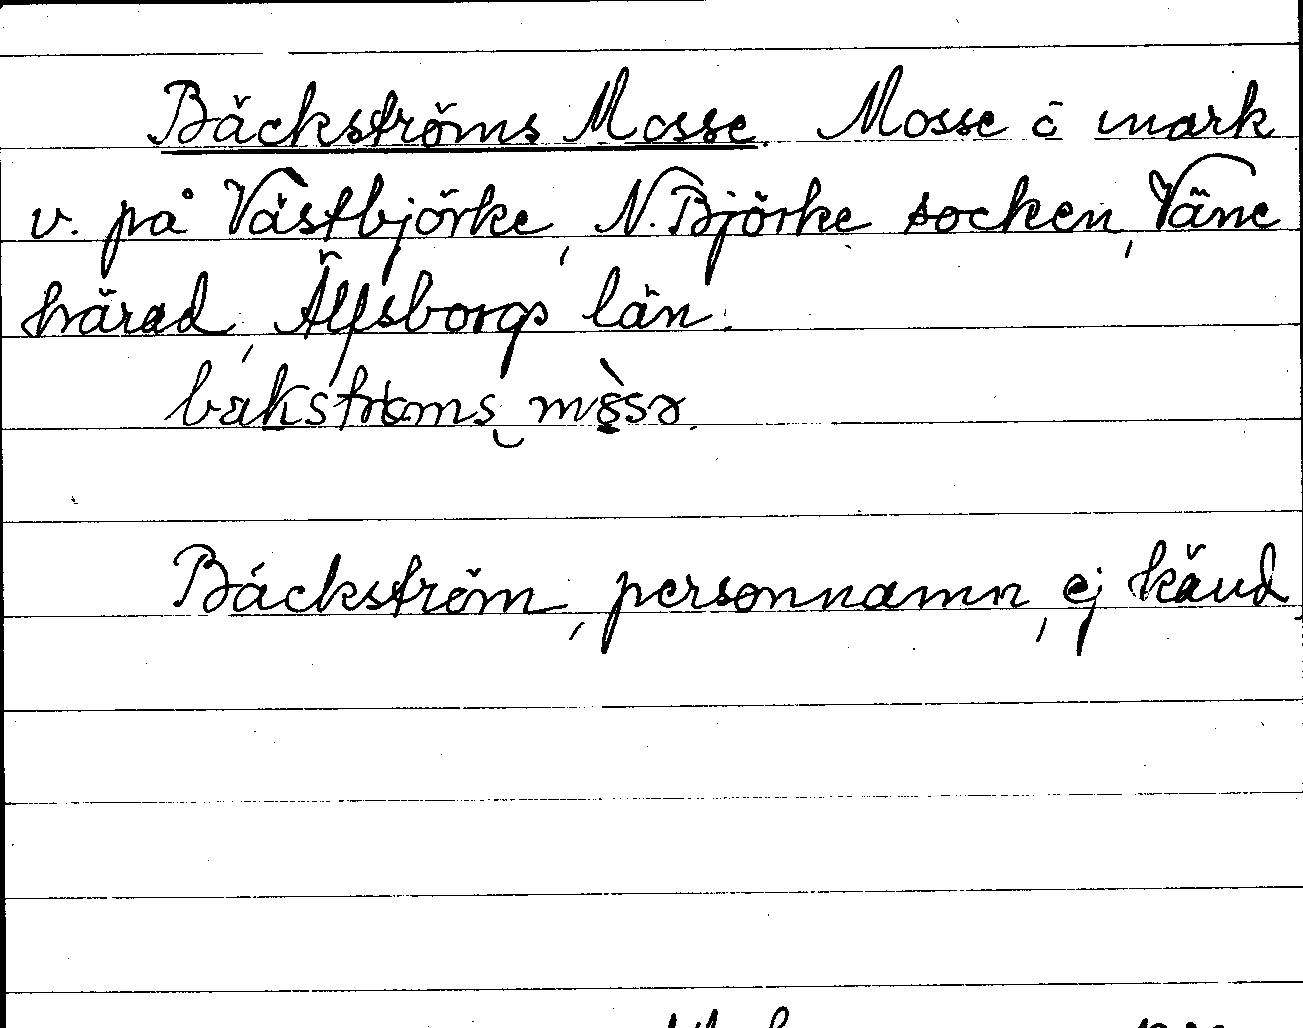 Bäckströms Mosse. Mosse å mark
v. på Västbjörke, N. Björke socken, Väne
härad, Älfsborgs län.
Bäckström, personnamn, ej känd.